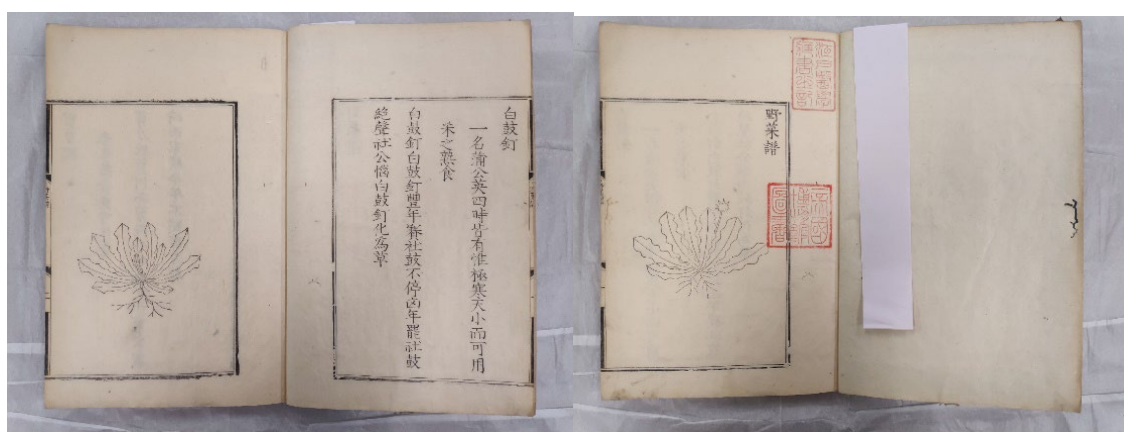 白鼓釘
一名蒲公英四時皆有惟極寒天小而可用
采之熟食
白鼓釘白鼓釘豐年賽社鼓不停凶年罷社鼓
絶聲社公惱白鼓釘化為草
野菜譜
江戸醫學
藏書之記